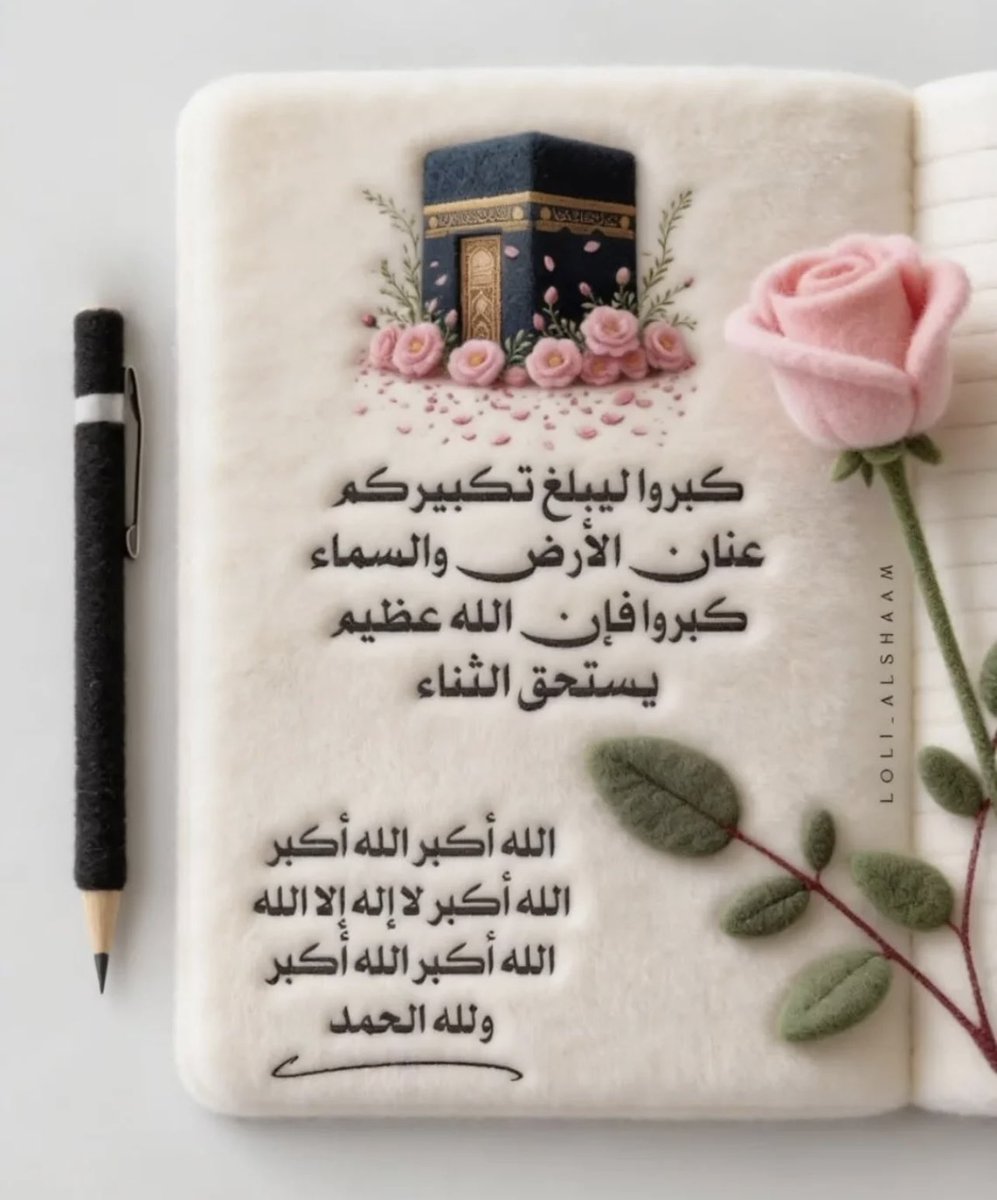 كبروا ليبلغ تكبيركم
عنان الأرض والسماء
كبروا فإن الله عظيم
يستحق الثناء
الله أكبر الله أكبر
الله أكبر لا إله إلا الله
الله أكبر الله أكبر
ولله الحمد
LOLI_ALSHAAM